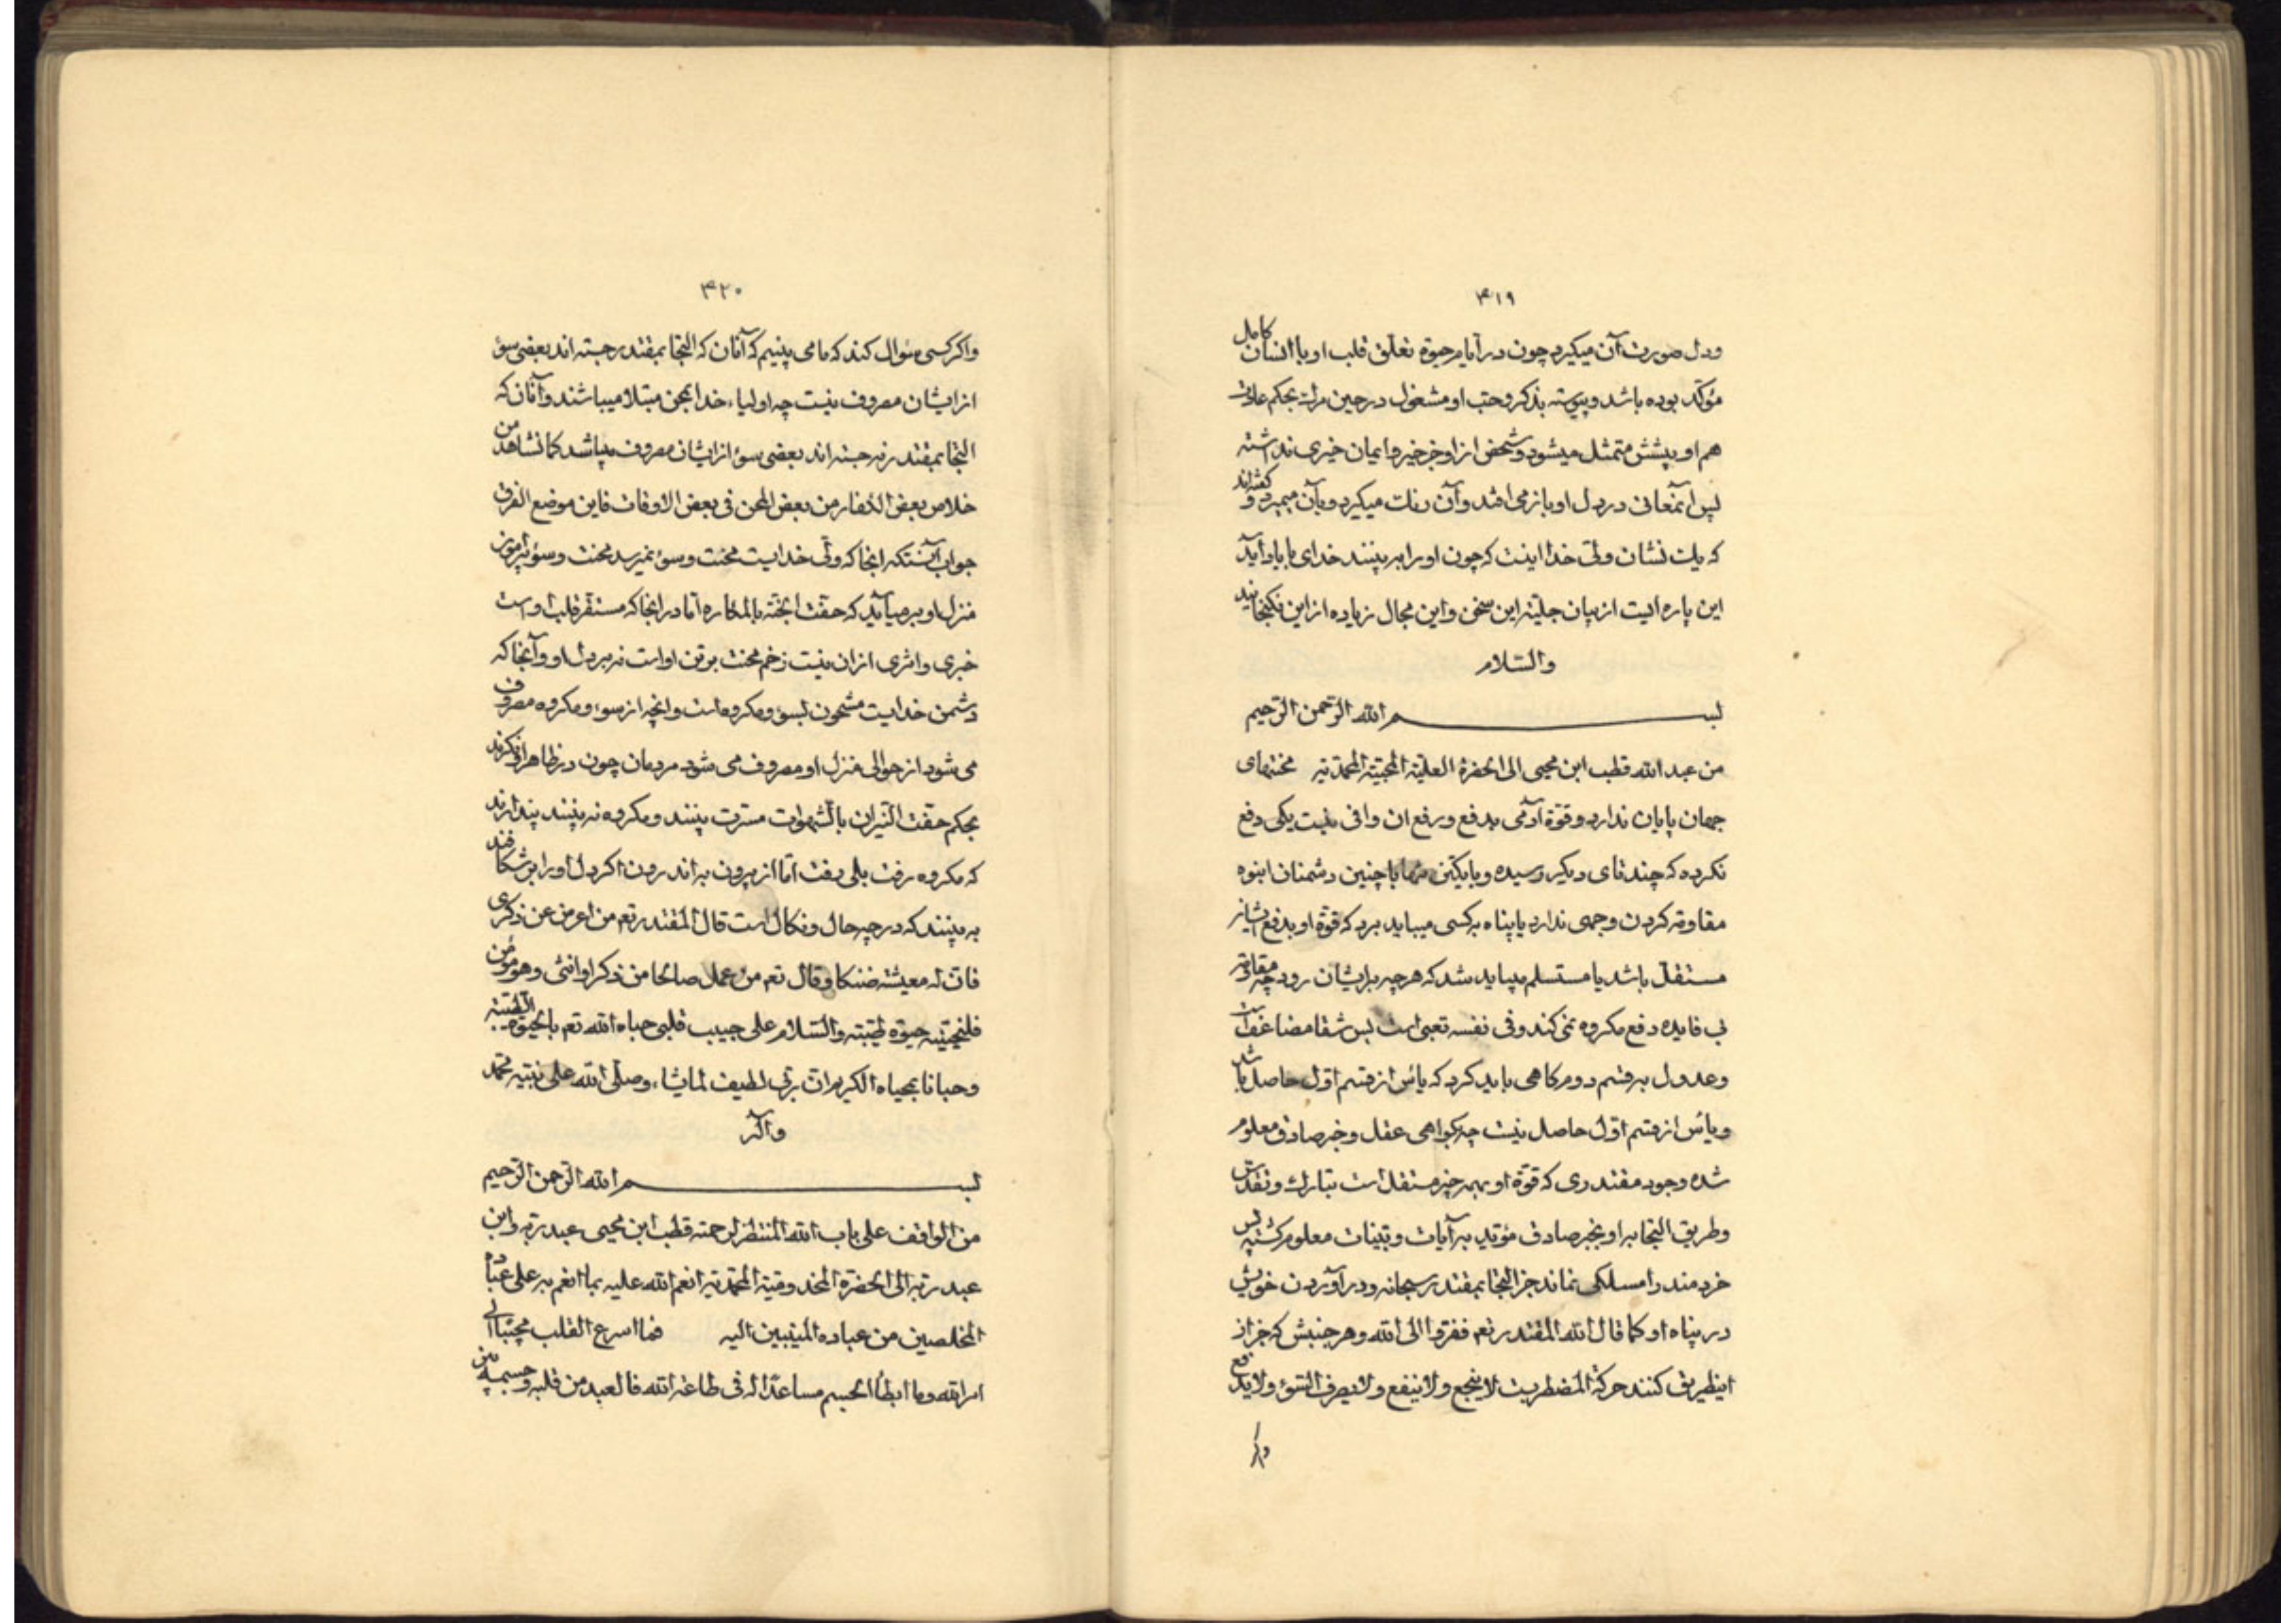 ۴۱۹
ودل صورت آن میکیرد چون در ایام حیوة تعلّق قلب او با انسان کامل
مؤکّد بوده باشد و پیوسته بذکر و حبّ او مشغول در حین مرك بحکم عادت
هم او پیشش متمثل میشود و شخص از او جز خیر و ایمان خبری نداشته
پس آنمعانی در دل او باز می افتد و آن رنك میکیرد و بآن میمیرد و کفته اند
که یك نشان ولی خدا اینست که چون او را به بینند خدای با یاد آید
این پاره ایست از بیان جلیّه این سخن و این مجال زیاده از این نکنجانید
والسّلام
بسم الله الرّحمن الرّحیم
من عبد الله قطب ابن محیی الی الحضرة العلیّة المحبّیّة المحمّدیّه محنتهای
جهان پایان ندارد و قوّة آدمی بدفع و رفع ان وافی نیست یکی دفع
نکرده که چند تای دیکر رسیده و با یکتن تنها با چنین دشمنان انبوه
مقاومة کردن وجهی ندارد یا پناه بکسی میباید برد که قوّة او بدفع ایشان
مستقلّ باشد یا مستسلم میباید شد که هرچه بر ایشان رود چه مقاومة
بی فایده دفع مکروه نمی کند و فی نفسه تعبی است پس شقا مضاعف است
وعدول بقسم دوم کاهی باید کرد که یأس از قسم اوّل حاصل باشد
و یأس از قسم اوّل حاصل نیست چه بکواهی عقل و خبر صادق معلوم
شده وجود مقتدری که قوّة او بهمه چیز مستقل است تبارك و تقدّس
و طریق التجا به او بخبر صادق مؤیّد به آیات و بیّنات معلوم کشته پس
خردمند را مسلکی نماند جز التجا بمقتدر سبحانه و در آوردن خویش
در پناه او کما قال الله المقتدر تعم ففرّوا الی الله و هر جنبش که جز از
اینطریق کنند حرکة المضطریست لا ینجع و لا ینفع و لا یصرف السّوء و لا یدفع
واکر
۴۲۰
واکر کسی سؤال کند که ما می بینیم که آنان که التجا بمقتدر جسته اند بعضی سوء
از ایشان مصروف نیست چه اولیاء خدا بمحن مبتلا میباشند و آنان که
التجا بمقتدر نه جسته اند بعضی سوء از ایشان مصروف میباشد کما نشاهد من
خلاص بعض الکفار من بعض المحن فی بعض الاوقات فاین موضع الفرق
جواب آنستکه اینجا که ولیّ خدایست محنت و سوء نمیرسد محنت و سوء پیرامون
منزل او بر میآید که حفّت الجنّة بالمکاره امّا در انجا که مستقرّ قلب او است
خبری و اثری از ان نیست زخم محنت بر تن او است نه بر دل او و آنجا که
دشمن خدایست مشحون بسوء و مکروه است و انچه از سوء و مکروه مصروف
می شود از حوالی منزل او مصروف می شود مردمان چون در ظاهر او نکرند
بحکم حفّت النّیران بالشّهوات مسرّت بینند و مکروه نه بینند پندارند
که مکروه رفت بلی رفت امّا از بیرون به اندرون اکر دل او را بر شکافند
به بینند که در چه حال و نکال است قال المقتدر تعم من اعرض عن ذکری
فانّ له معیشة ضنکا و قال تعم من عمل صالحا من ذکر او انثی و هو مؤمن
فلنحیینّه حیوة طیّبة والسّلام علی حبیب قلبی حیاه الله تعم بالحیوة الطّیّبة
وحیانا بمحیاه الکریم ان ربّی لطیف لما یشاء وصلّی الله علی نبیّه محمّد
وآله
بسم الله الرّحمن الرّحیم
من الواقف علی باب الله المنتظر لرحمته قطب ابن محیی عبد ربّه وابن
عبد ربّه الی الحضرة المخدومیّة المحمّدیّه انعم الله علیه بما انعم به علی عباده
المخلصین من عباده المنیبین الیه فما اسرع القلب مجیبا الی
امر الله وما ابطأ الجسم مساعدا له فی طاعة الله فالعبد من قلبه وجسمه بین